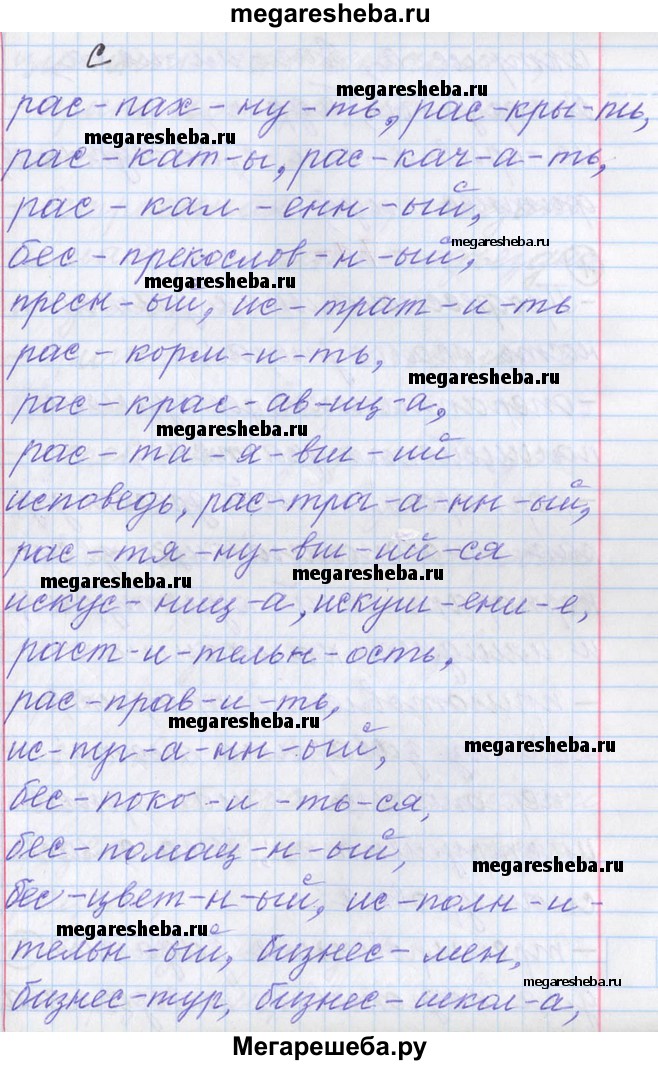 megaresheba.ru
С
megaresheba.ru
рас-пах-ну-ть, рас-кры-ть,
megaresheba.ru
рас-кат-ы, рас-кач-а-ть,
рас-кал-енн-ый,
megaresheba.ru
бес-прекослов-н-ый,
megaresheba.ru
пресн-ый, ис-трат-и-ть
рас-корм-и-ть,
megaresheba.ru
рас-крас-ав-иц-а,
megaresheba.ru
рас-та-я-вш-ий
исповедь, рас-трог-а-нн-ый,
рас-тя-ну-вш-ий-ся
megaresheba.ru megaresheba.ru
искус-ниц-а, искуш-ени-е,
раст-и-тельн-ость,
рас-прав-и-ть,
megaresheba.ru
ис-пуг-а-нн-ый,
megaresheba.ru
бес-поко-и-ть-ся,
бес-помощ-н-ый,
megaresheba.ru
бес-цвет-н-ый, ис-полн-и-
megaresheba.ru
тельн-ый, бизнес-мен,
megaresheba.ru
бизнес-тур, бизнес-школ-а,
Мегарешеба.ру